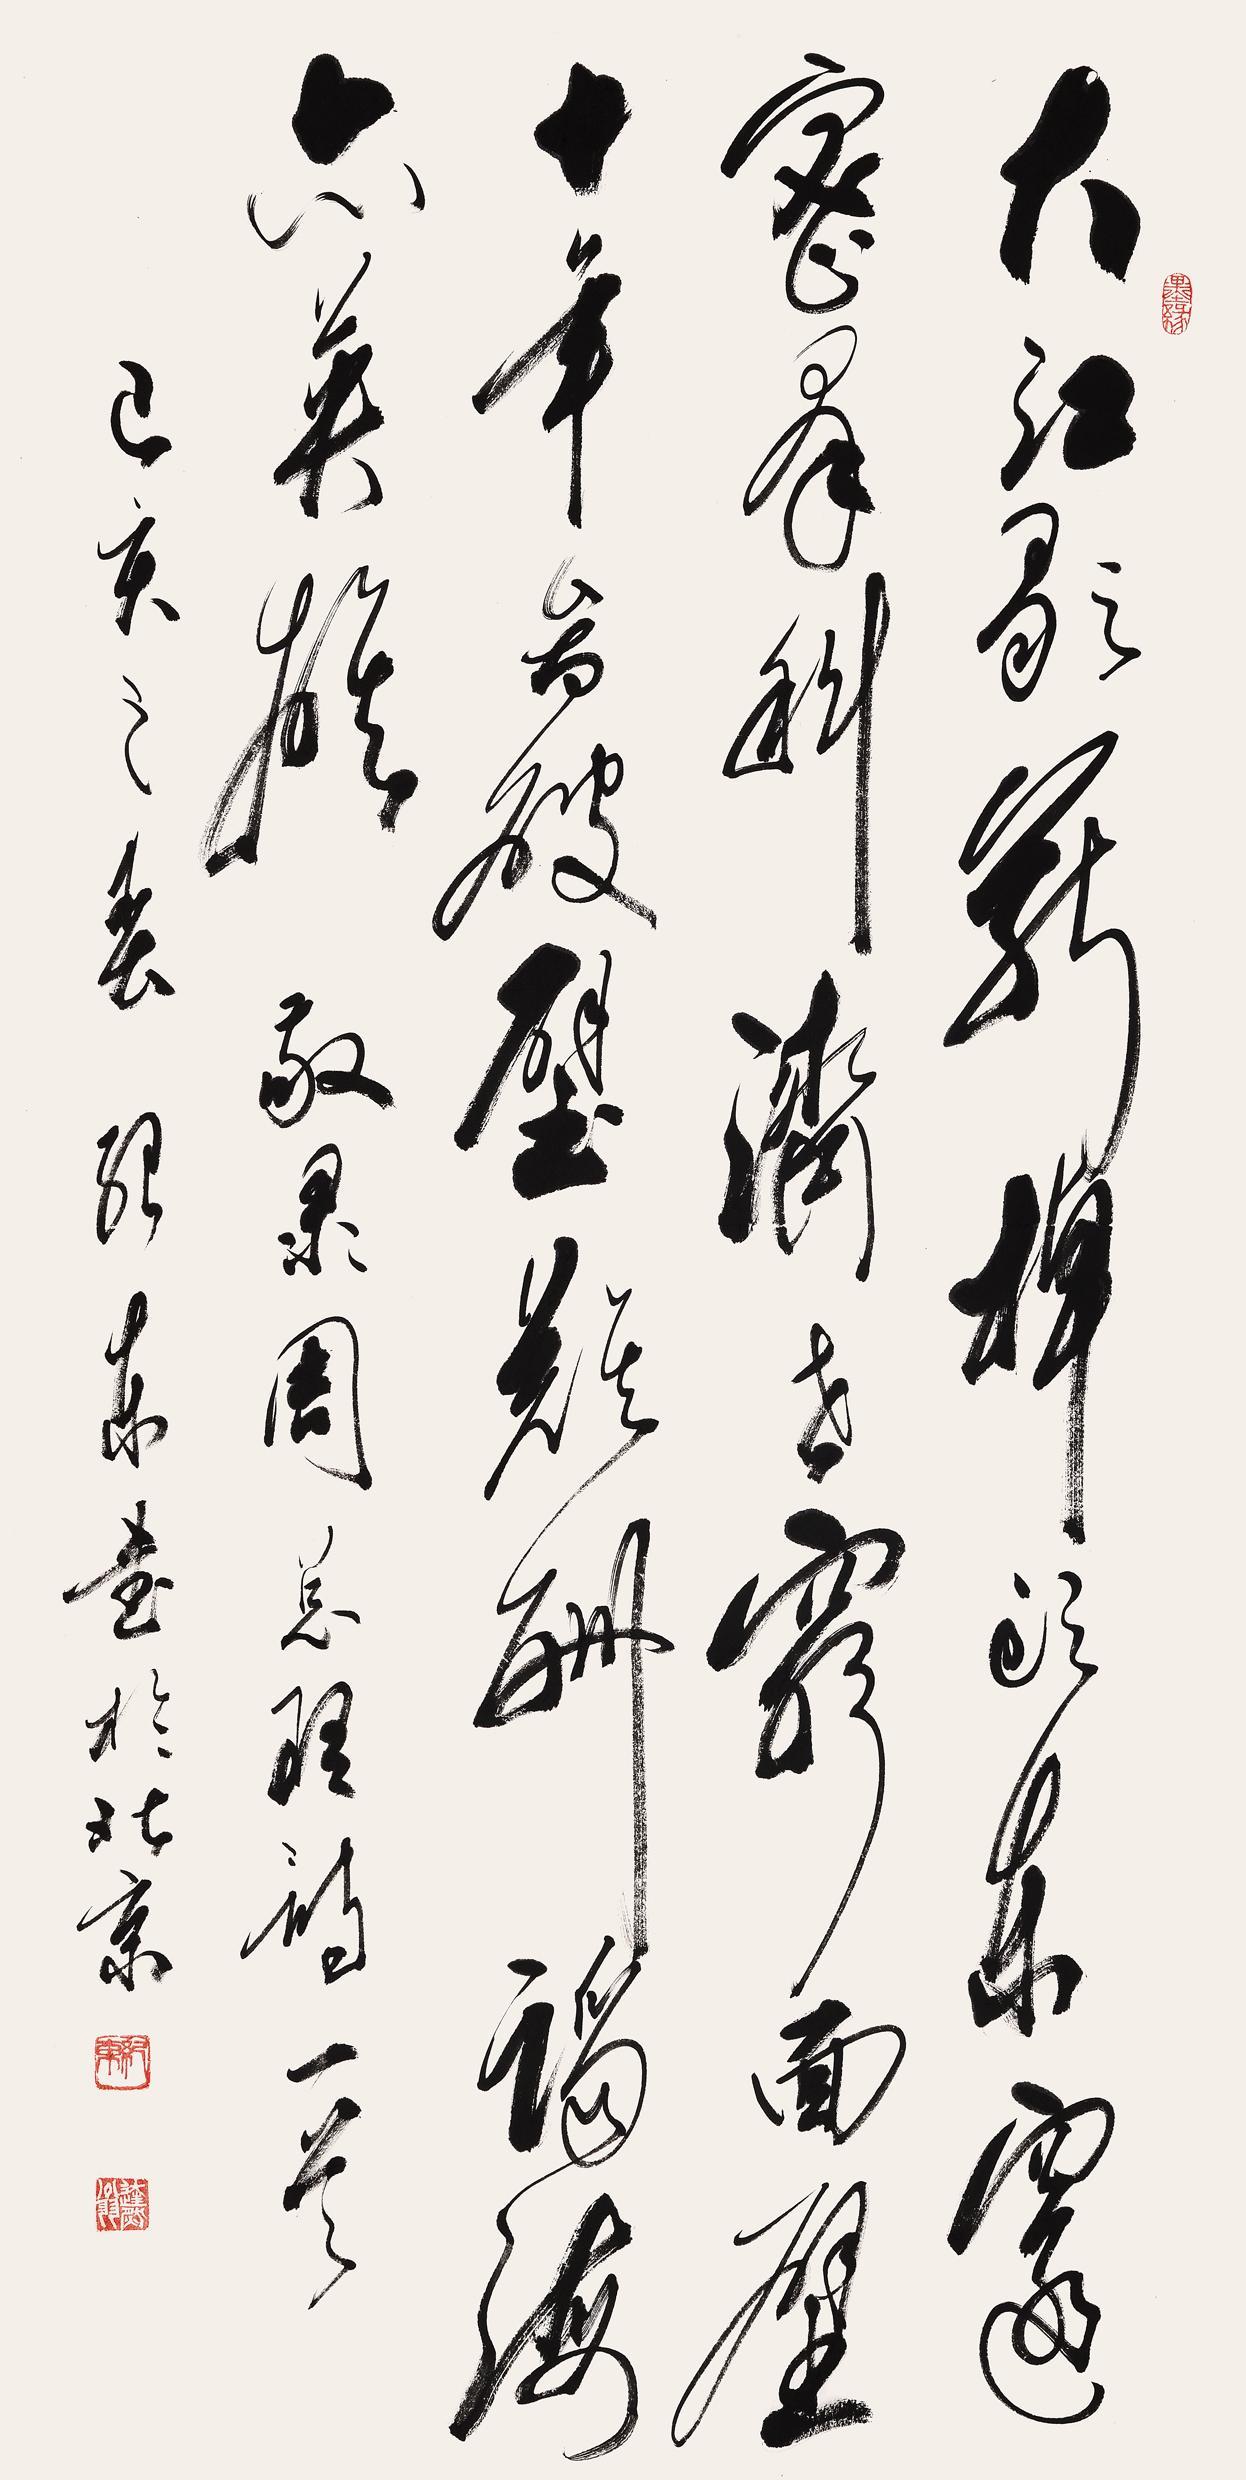 大江歌罷掉頭東邃
密群科濟世窮面壁
十年圖破壁難酬蹈海
亦英雄 敬录周总理詩一首
己亥之春 紀東書於北京
墨緣
紀東